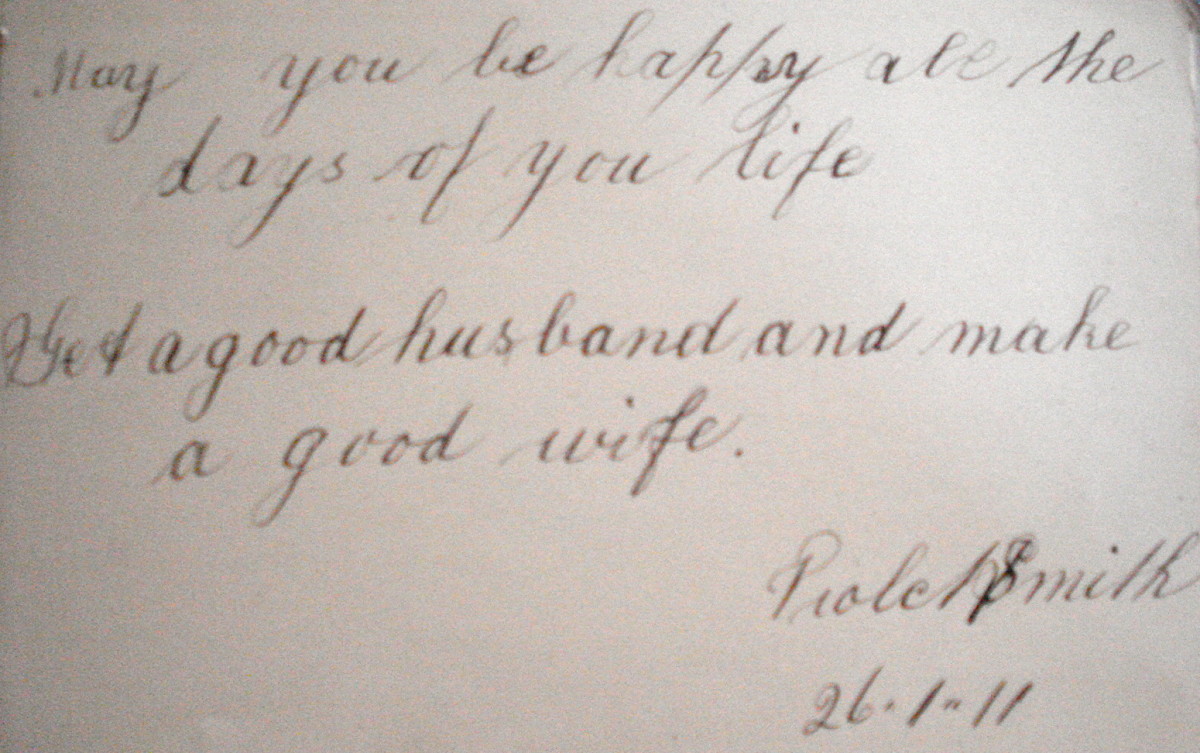 May you be happy all the
days of you life
Get a good husband and make
a good wife.
Violet Smith
26-1-11